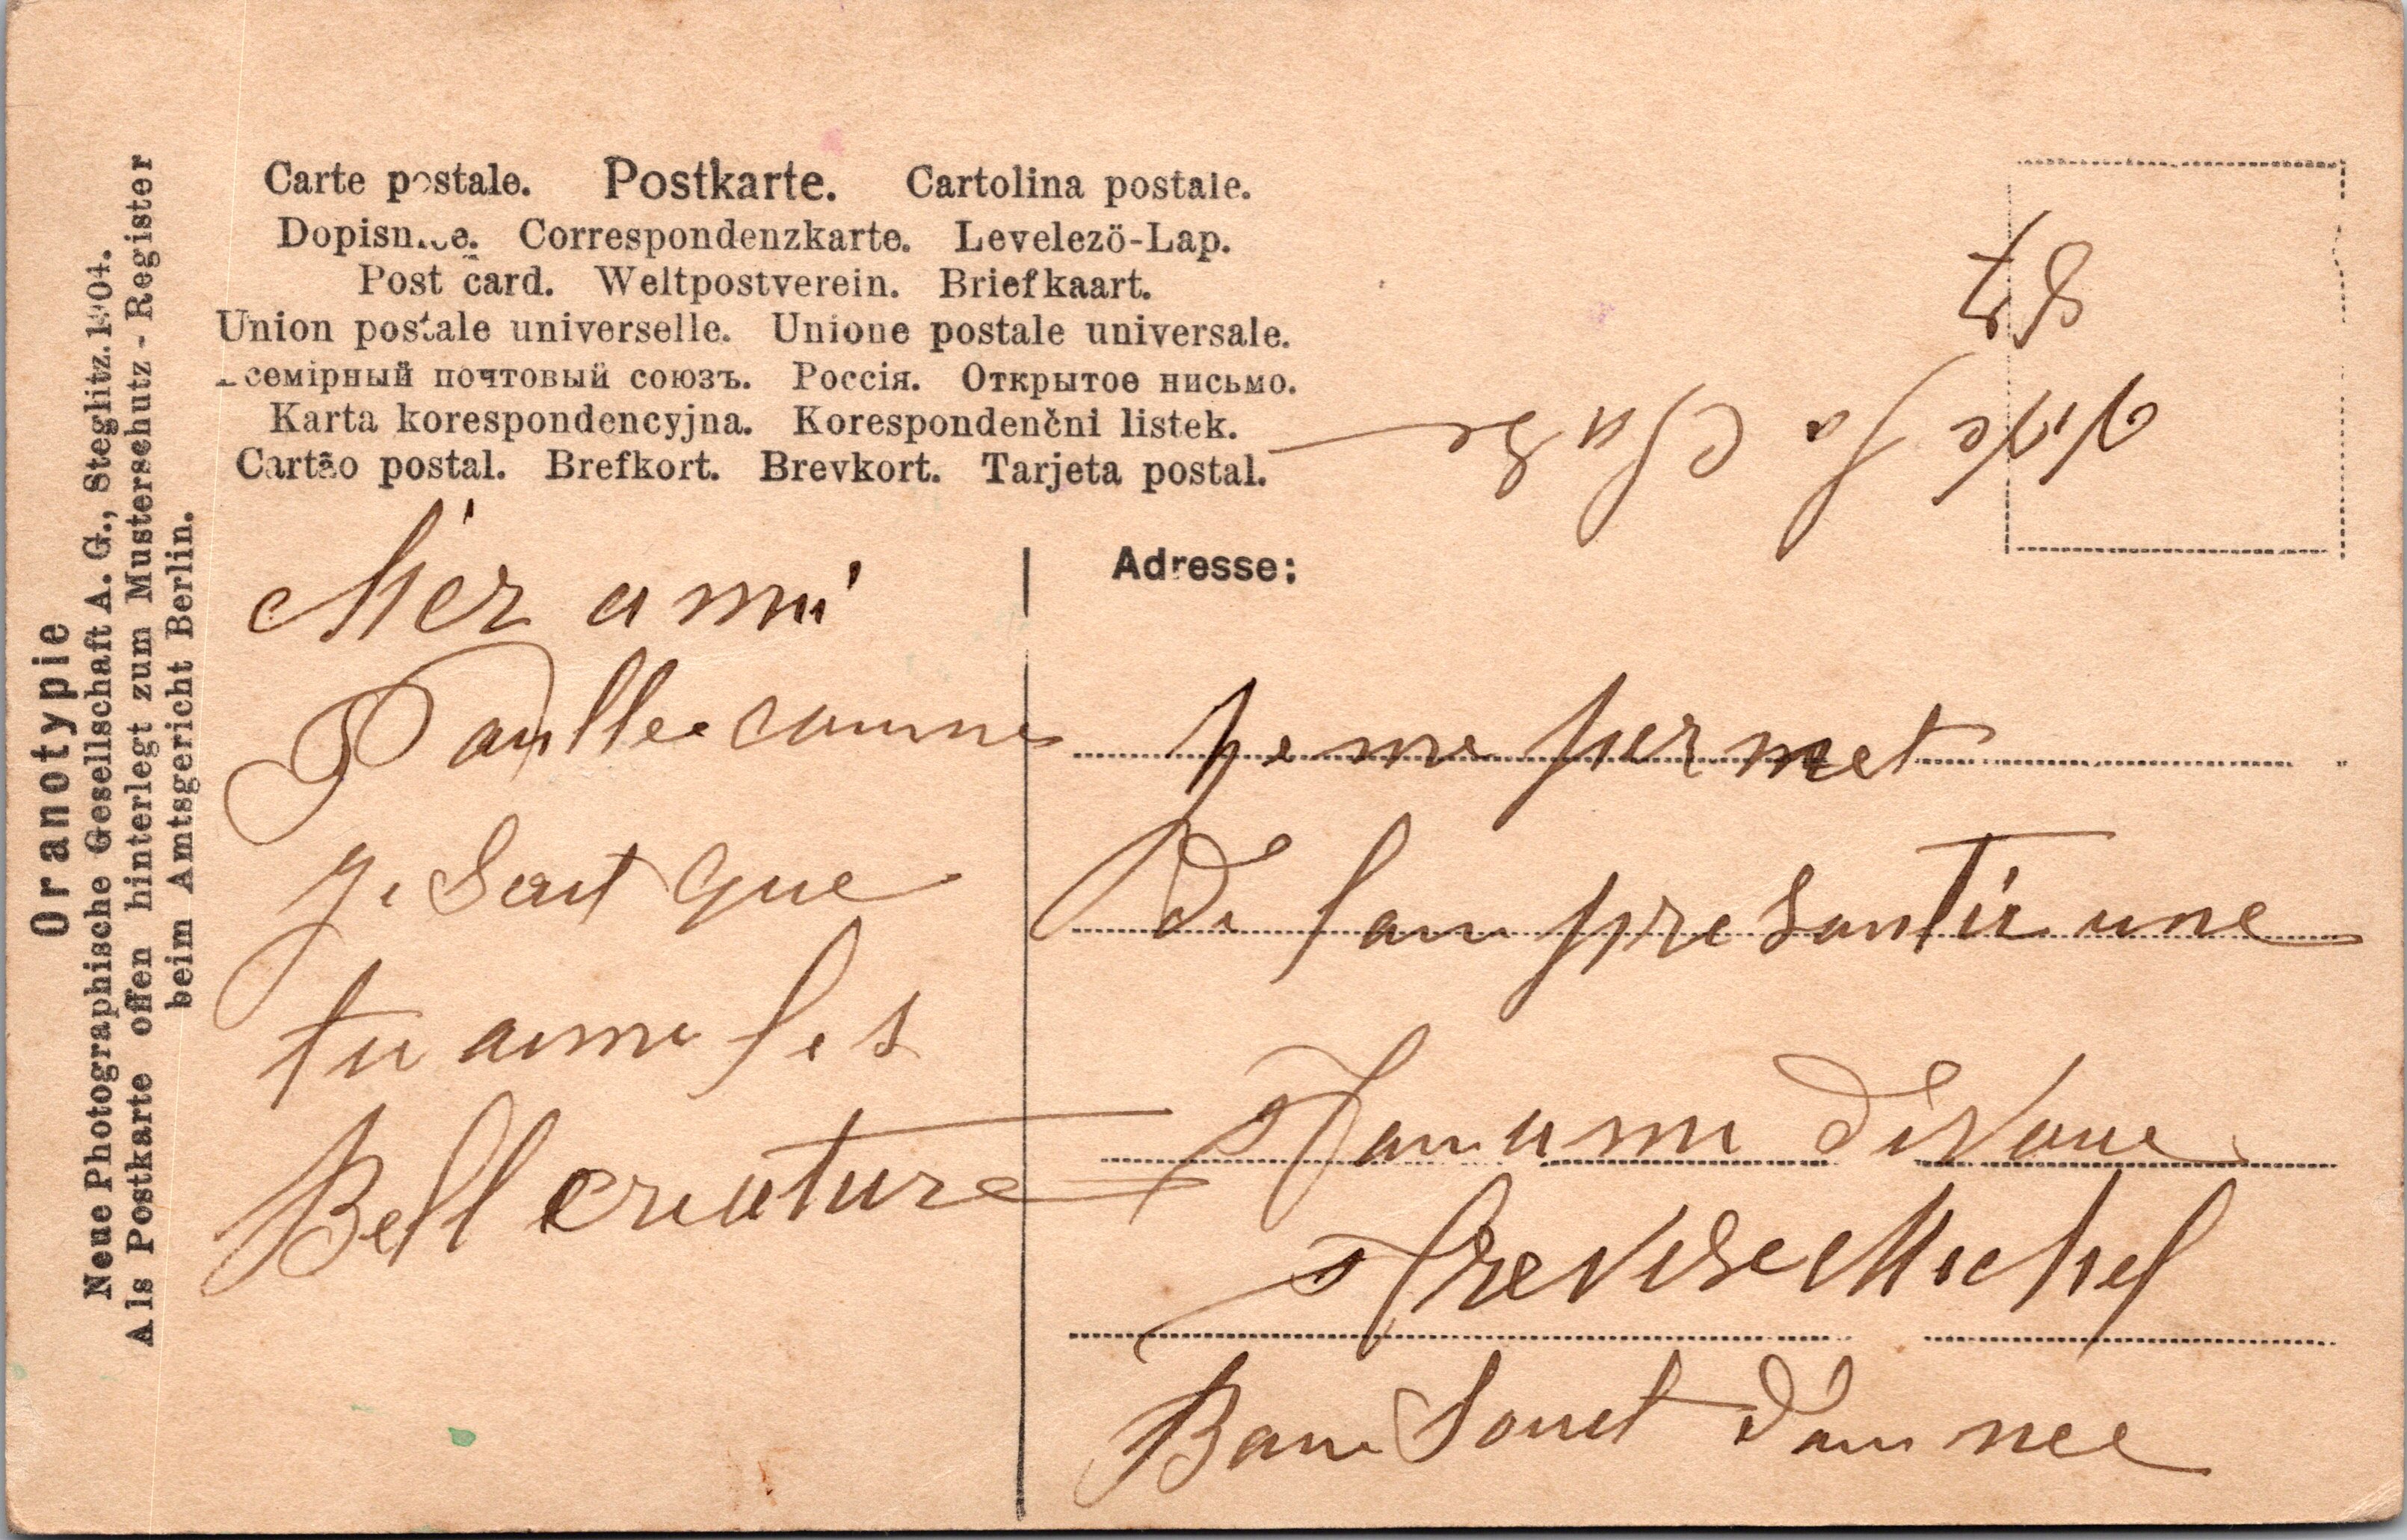 Oranotypie
Neue Photographische Gesellschaft A. G., Steglitz. 1904.
Als Postkarte offen hinterlegt zum Musterschutz-Register
beim Amtsgericht Berlin.
Carte postale. Postkarte. Cartolina postale.
Dopisnice. Correspondenzkarte. Levelező-Lap.
Post card. Weltpostverein. Briefkaart.
Union postale universelle. Unione postale universale.
Всемірный почтовый союзъ. Россія. Открытое письмо.
Karta korespondencyjna. Korespondenčni listek.
Cartão postal. Brefkort. Brevkort. Tarjeta postal.
Vive la Clase
Adresse:
cher ami
Paulle comme
je sait que
tu aime les
Bell creature
je me permet
de tan presantir une
tan ami devoue
Michel
Banne Souet d'anne